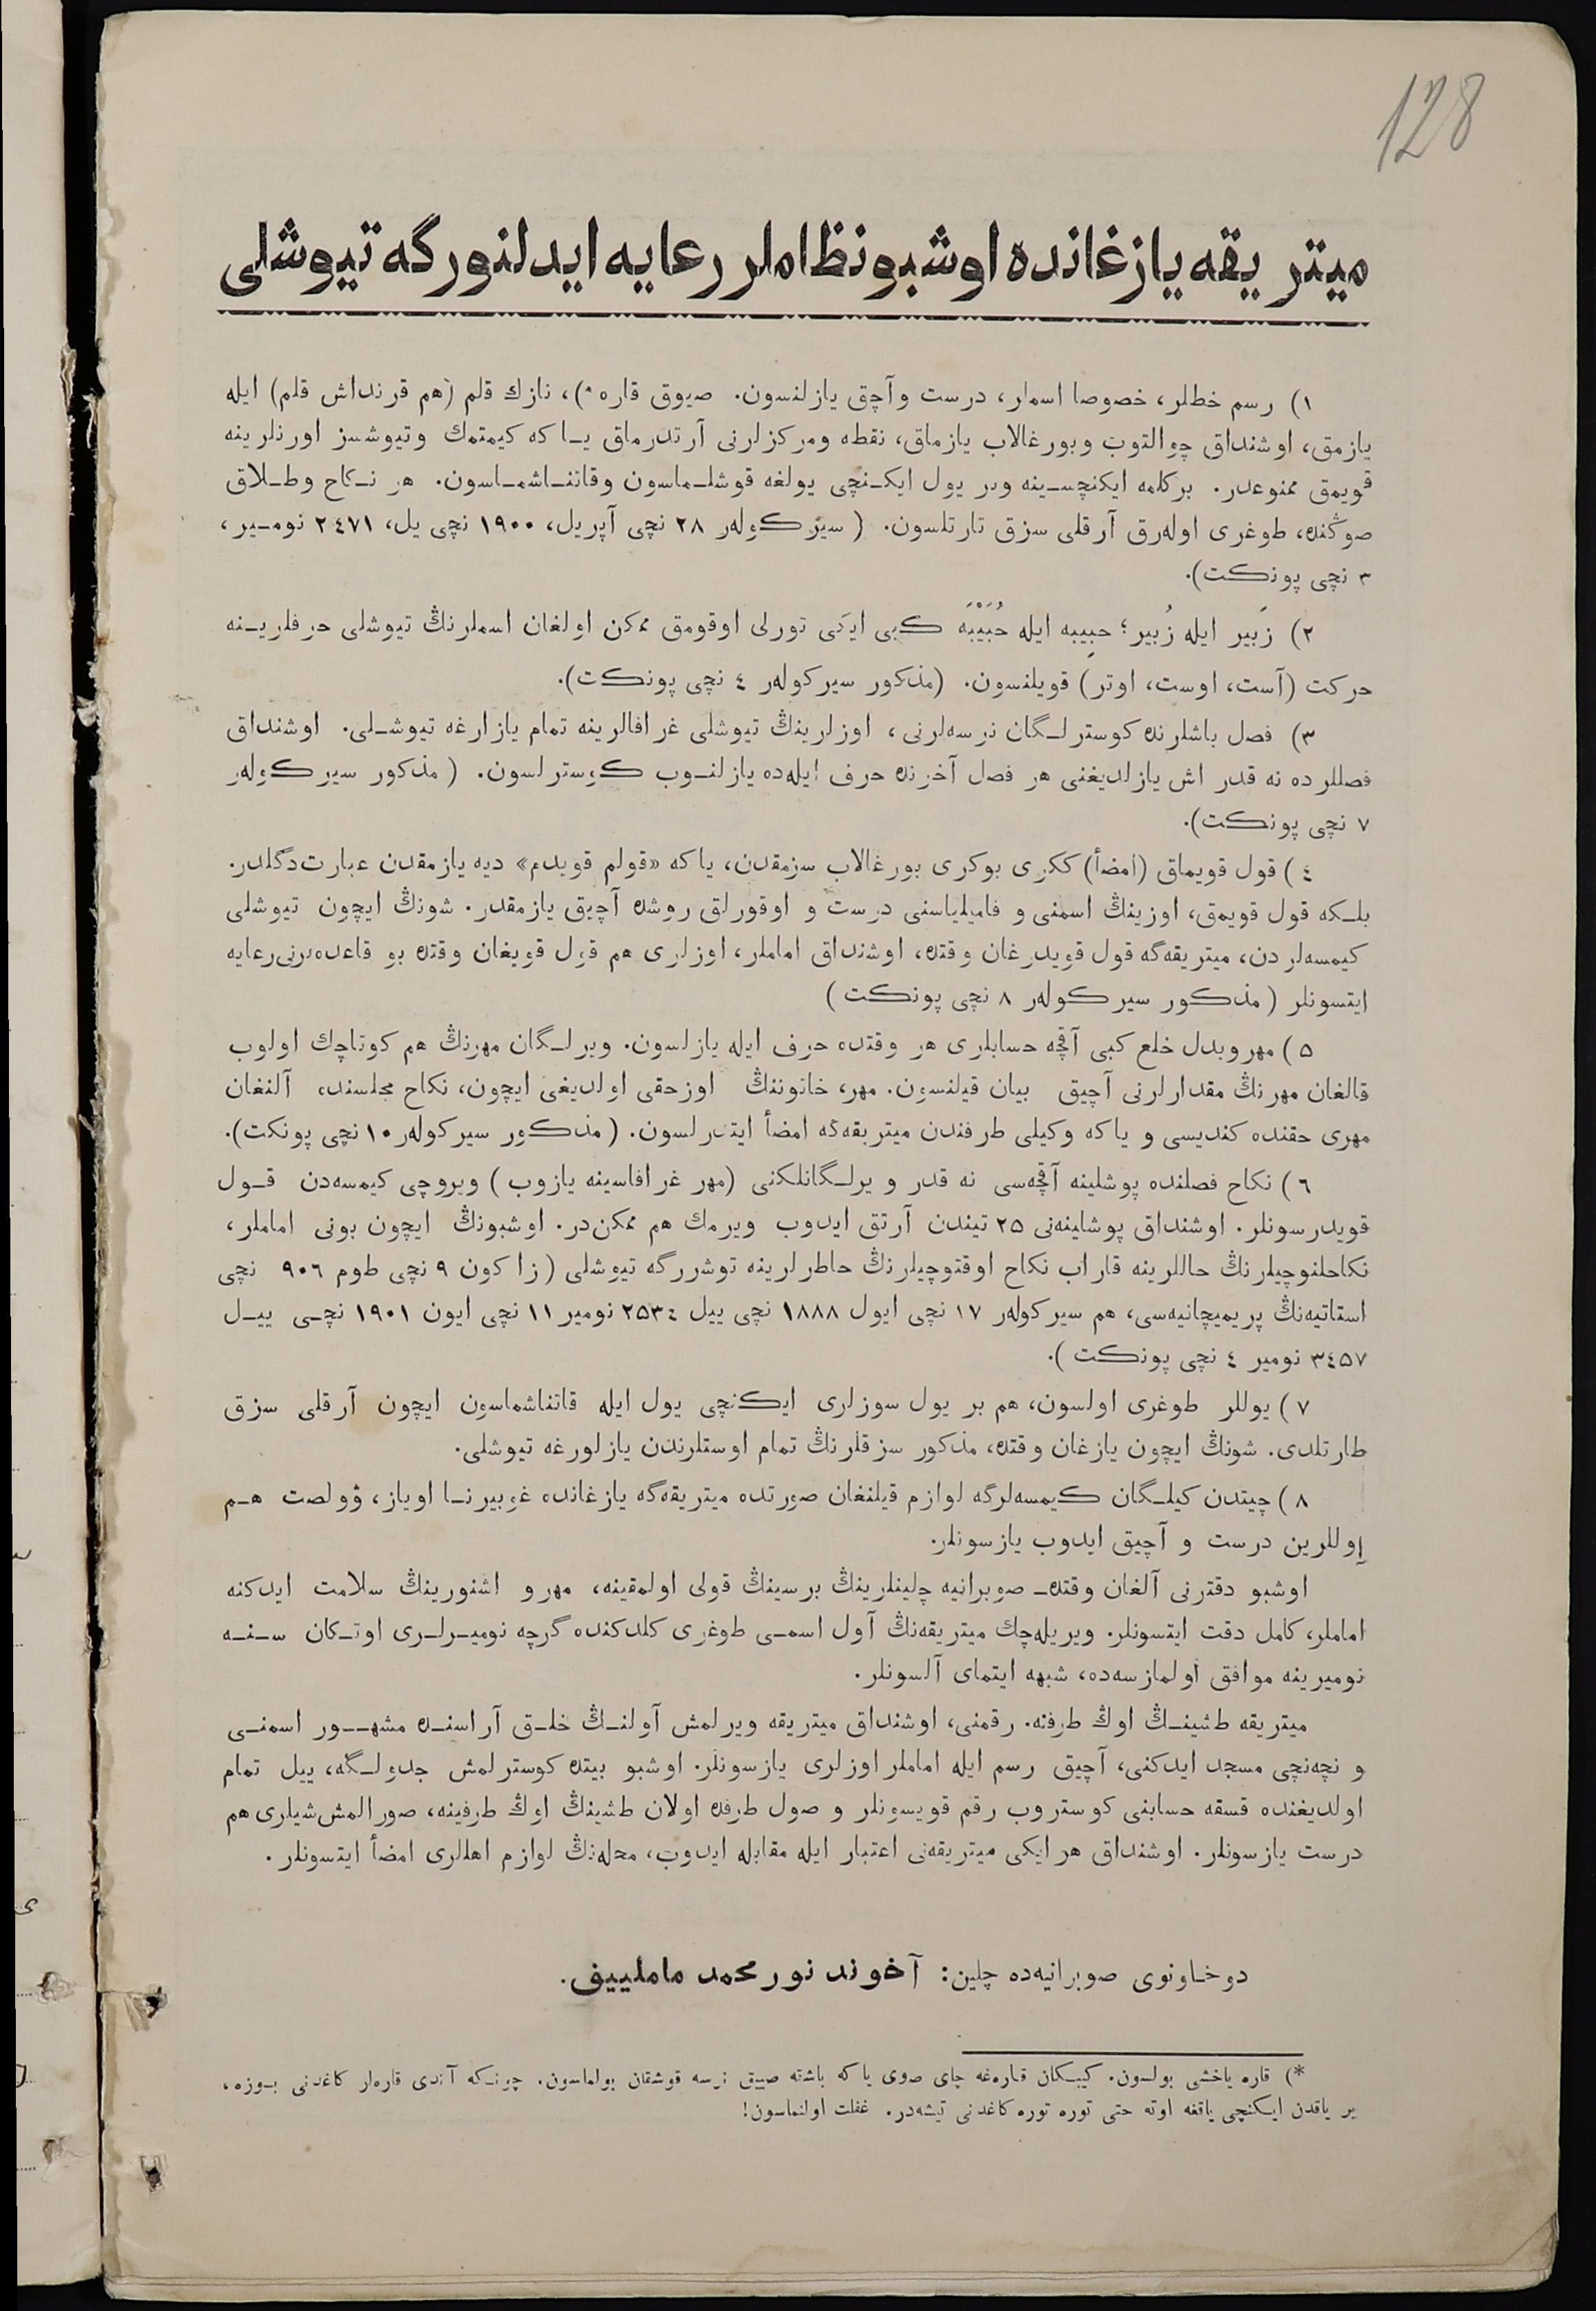 128
ميتريقه يازغانده اوشبو نظاملر رعايه ايدلنورگه تيوشلى
١) رسم خطلر، خصوصا اسملر، درست وآچق يازلنسون. صيوق قاره *)، نازك قلم (هم قرنداش قلم) ايله
يازمق، اوشنداق چوالتوب وبورغالاب يازماق، نقطه ومركزلرنى آرتدرماق يـاكه كيمتمك وتيوشسز اورنلرينه
قويمق ممنوعدر. بركلمه ايكنچسـينه وبر يول ايكـنچى يولغه قوشلـماسون وقاتنـاشمـاسون. هر نـكاح وطـلاق
صوڭنده، طوغرى اوله‌رق آرقلى سزق تارتلسون. (سيركوله‌ر ٢٨ نچى آپريل، ١٩٠٠ نچى يل، ٢٤٧١ نومـير،
٣ نچى پونكت).
٢) زَبير ايله زُبير؛ حبِيبه ايله حُبَيْبَه كبى ايكى تورلى اوقومق ممكن اولغان اسملرنڭ تيوشلى حرفلريـنه
حركت (آست، اوست، اوتر) قويلنسون. (مذكور سيركوله‌ر ٤ نچى پونكت).
٣) فصل باشلرنده كوسترلـگان نرسه‌لرنى، اوزلرينڭ تيوشلى غرافالرينه تمام يازارغه تيوشـلى. اوشنداق
فصللرده نه قدر اش يازلديغنى هر فصل آخرنده حرف ايله‌ده يازلنـوب كوسترلسون. (مذكور سيركوله‌ر
٧ نچى پونكت).
٤) قول قويماق (امضأ) ككرى بوكرى بورغالاب سزمقدن، ياكه «قولم قويدم» ديه يازمقدن عبارت دگلدر.
بلـكه قول قويمق، اوزينڭ اسمنى و فاميلياسنى درست و اوقورلق روشده آچيق يازمقدر. شونڭ ايچون تيوشلى
كيمسه‌لردن، ميتريقه‌گه قول قويدرغان وقتده، اوشنداق اماملر، اوزلرى هم قول قويغان وقتده بو قاعده‌برنى رعايه
ايتسونلر (مذكور سيركوله‌ر ٨ نچى پونكت)
٥) مهر وبدل خلع كبى آقچه حسابلرى هر وقتده حرف ايله يازلسون. ويرلـگان مهرنڭ هم كوتاچك اولوب
قالغان مهرنڭ مقدارلرنى آچيق بيان قيلنسون. مهر، خاتوننڭ اوزحقى اولديغى ايچون، نكاح مجلسنده آلنغان
مهرى حقنده كنديسى و ياكه وكيلى طرفندن ميتريقه‌گه امضأ ايتدرلسون. (مذكور سيركوله‌ر ١٠ نچى پونكت).
٦) نكاح فصلنده پوشلينه آقچه‌سى نه قدر ويرلـگانلكنى (مهر غرافاسينه يازوب) ويروچى كيمسه‌دن قـول
قويدرسونلر. اوشنداق پوشلينه‌نى ٢٥ تيندن آرتق ايدوب ويرمك هم ممكن‌در. اوشبونڭ ايچون بونى اماملر،
نكاحلنوچيلرنڭ حاللرينه قاراب نكاح اوقتوچيلرنڭ خاطرلرينه توشررگه تيوشلى (زاكون ٩ نچى طوم ٩٠٦ نچى
استاتيه‌نڭ پريميچانيه‌سى، هم سيركوله‌ر ١٧ نچى ايول ١٨٨٨ نچى ييل ٢٥٣٤ نومير ١١ نچى ايون ١٩٠١ نچـى ييـل
٣٤٥٧ نومير ٤ نچى پونكت).
٧) يوللر طوغرى اولسون، هم بر يول سوزلرى ايكنچى يول ايله قاتناشماسون ايچون آرقلى سزق
طارتلدى. شونڭ ايچون يازغان وقتده، مذكور سزقلرنڭ تمام اوستلرندن يازلورغه تيوشلى.
٨) چيتدن كيلـگان كيمسه‌لرگه لوازم قيلنغان صورتده ميتريقه‌گه يازغانده غوبيرنـا اوياز، ۋولصت هـم
آوللرين درست و آچيق ايدوب يازسونلر.
اوشبو دفترنى آلغان وقتده صوبرانيه چلينلرينڭ برسينڭ قولى اولمقينه، مهر و اشنورينڭ سلامت ايدكنه
اماملر، كامل دقت ايتسونلر. ويريله‌چك ميتريقه‌نڭ آول اسمـى طوغرى كلدكنده گرچه نوميـرلـرى اوتـكان سـنـه
نوميرينه موافق اولمازسه‌ده، شبهه ايتماى آلسونلر.
ميتريقه طشينـڭ اوڭ طرفنه رقمنى، اوشنداق ميتريقه ويرلمش آولنـڭ خلـق آراسنـده مشهـور اسمنـى
و نچه‌نچى مسجد ايدكنى، آچيق رسم ايله اماملر اوزلرى يازسونلر. اوشبو بيتده كوسترلمش جدولـگه، ييل تمام
اولديغنده قسقه حسابنى كوستروب رقم قويسونلر و صول طرفده اولان طشينڭ اوڭ طرفينه، صورالمش شيلرى هم
درست يازسونلر. اوشنداق هر ايكى ميتريقه‌نى اعتبار ايله مقابله ايدوب، محله‌نڭ لوازم اهللرى امضأ ايتسونلر.
دوخاونوى صوبرانيه‌ده چلين: آخوند نورمحمد مامليیف.
*) قاره ياخشى بولسون. كيبكان قاره‌غه چاى صوى ياكه باشقه صييق نرسه قوشقان بولماسون. چونـكه آندى قاره‌لر كاغدنى بـوزه،
بر ياقدن ايـكنچى ياققه اوته حتى توره توره كاغدنى تيشه‌در. غفلت اولنماسون!